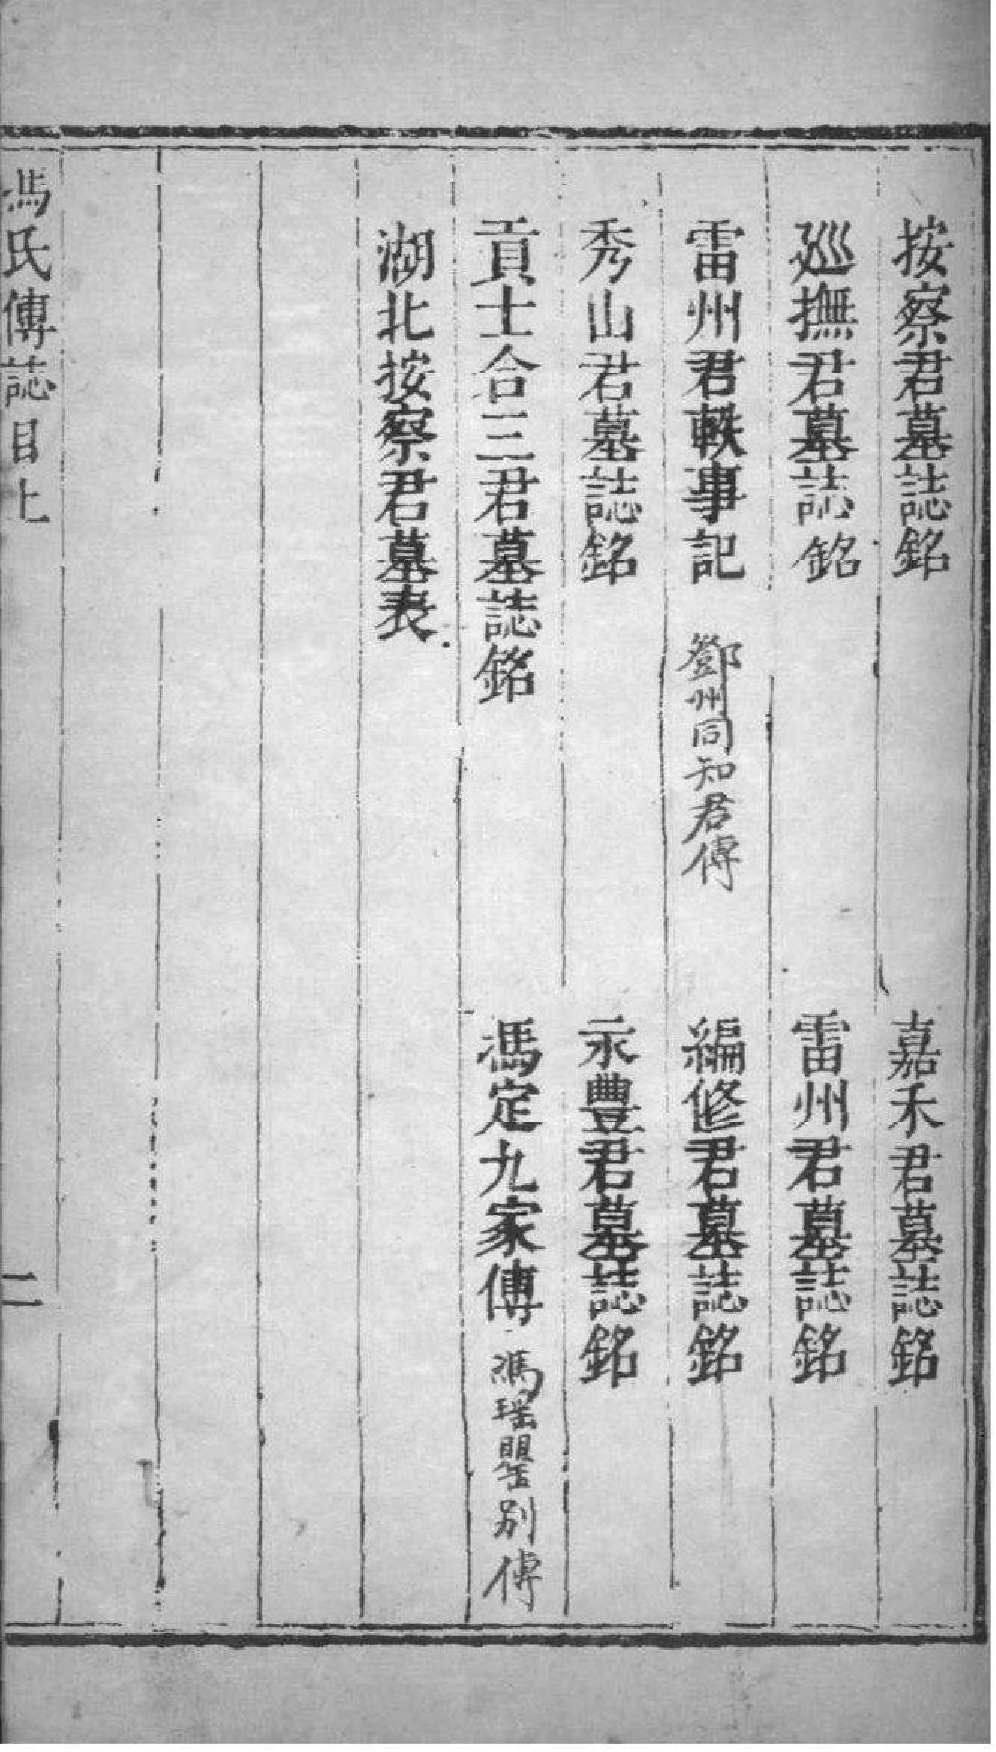 按察君墓誌銘　嘉禾君墓誌銘
廵撫君墓誌銘　雷州君墓誌銘
雷州君軼事記　鄧州同知君傳　編修君墓誌銘
秀山君墓誌銘　永豐君墓誌銘
貢士合三君墓誌銘　馮定九家傳　馮瑤罌別傳
湖北按察君墓表
馮氏傳誌目上　二